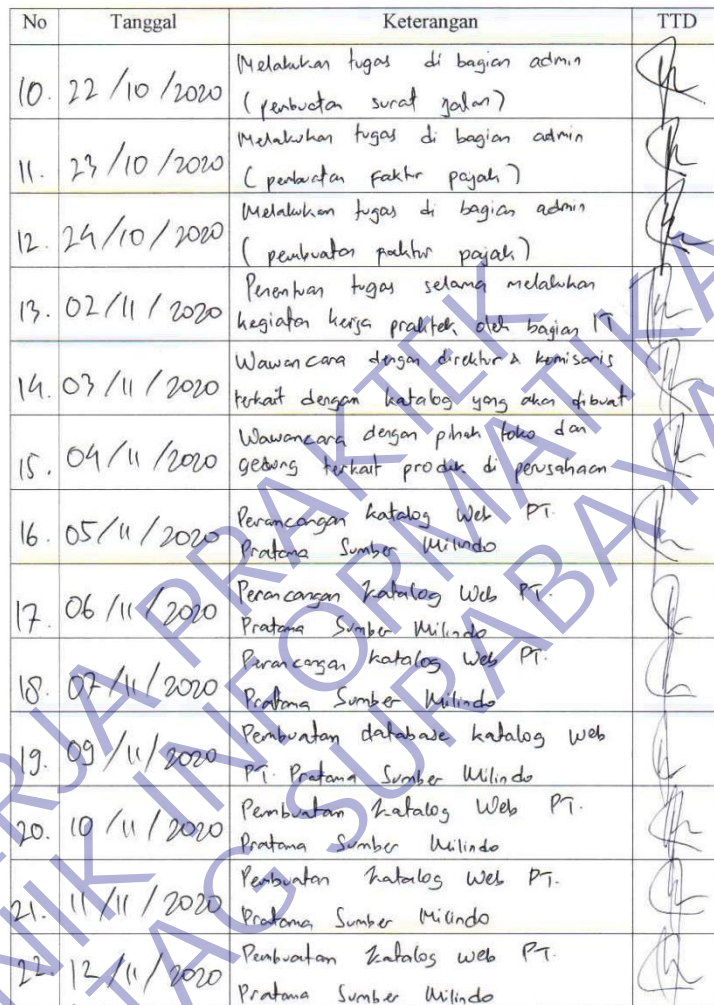 No Tanggal Keterangan TTD
10. 22/10/2020 Melakukan tugas di bagian admin
(pembuatan surat jalan)
11. 23/10/2020 Melakukan tugas di bagian admin
(pembuatan faktur pajak)
12. 24/10/2020 Melakukan tugas di bagian admin
(pembuatan faktur pajak)
13. 02/11/2020 Penentuan tugas selama melakukan
kegiatan kerja praktek oleh bagian IT
14. 03/11/2020 Wawancara dengan direktur & komisaris
terkait dengan katalog yang akan dibuat
15. 04/11/2020 Wawancara dengan pihak toko dan
gedung terkait produk di perusahaan
16. 05/11/2020 Perancangan katalog Web PT.
Pratama Sumber Milindo
17. 06/11/2020 Perancangan katalog Web PT.
Pratama Sumber Milindo
18. 07/11/2020 Perancangan katalog Web PT.
Pratama Sumber Milindo
19. 09/11/2020 Pembuatan database katalog web
PT. Pratama Sumber Milindo
20. 10/11/2020 Pembuatan katalog Web PT.
Pratama Sumber Milindo
21. 11/11/2020 Pembuatan katalog Web PT.
Pratama Sumber Milindo
22. 12/11/2020 Pembuatan katalog web PT.
Pratama Sumber Milindo
KERJA PRAKTEK
TEKNIK INFORMATIKA
UNTAG SURABAYA